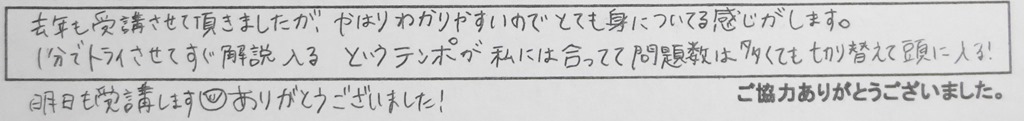 去年も受講させて頂きましたが、やはりわかりやすいのでとても身についてる感じがします。
1分でトライさせてすぐ解説入る というテンポが私には合ってて問題数は多くても切り替えて頭に入る!
明日も受講します☺ありがとうございました!
ご協力ありがとうございました。